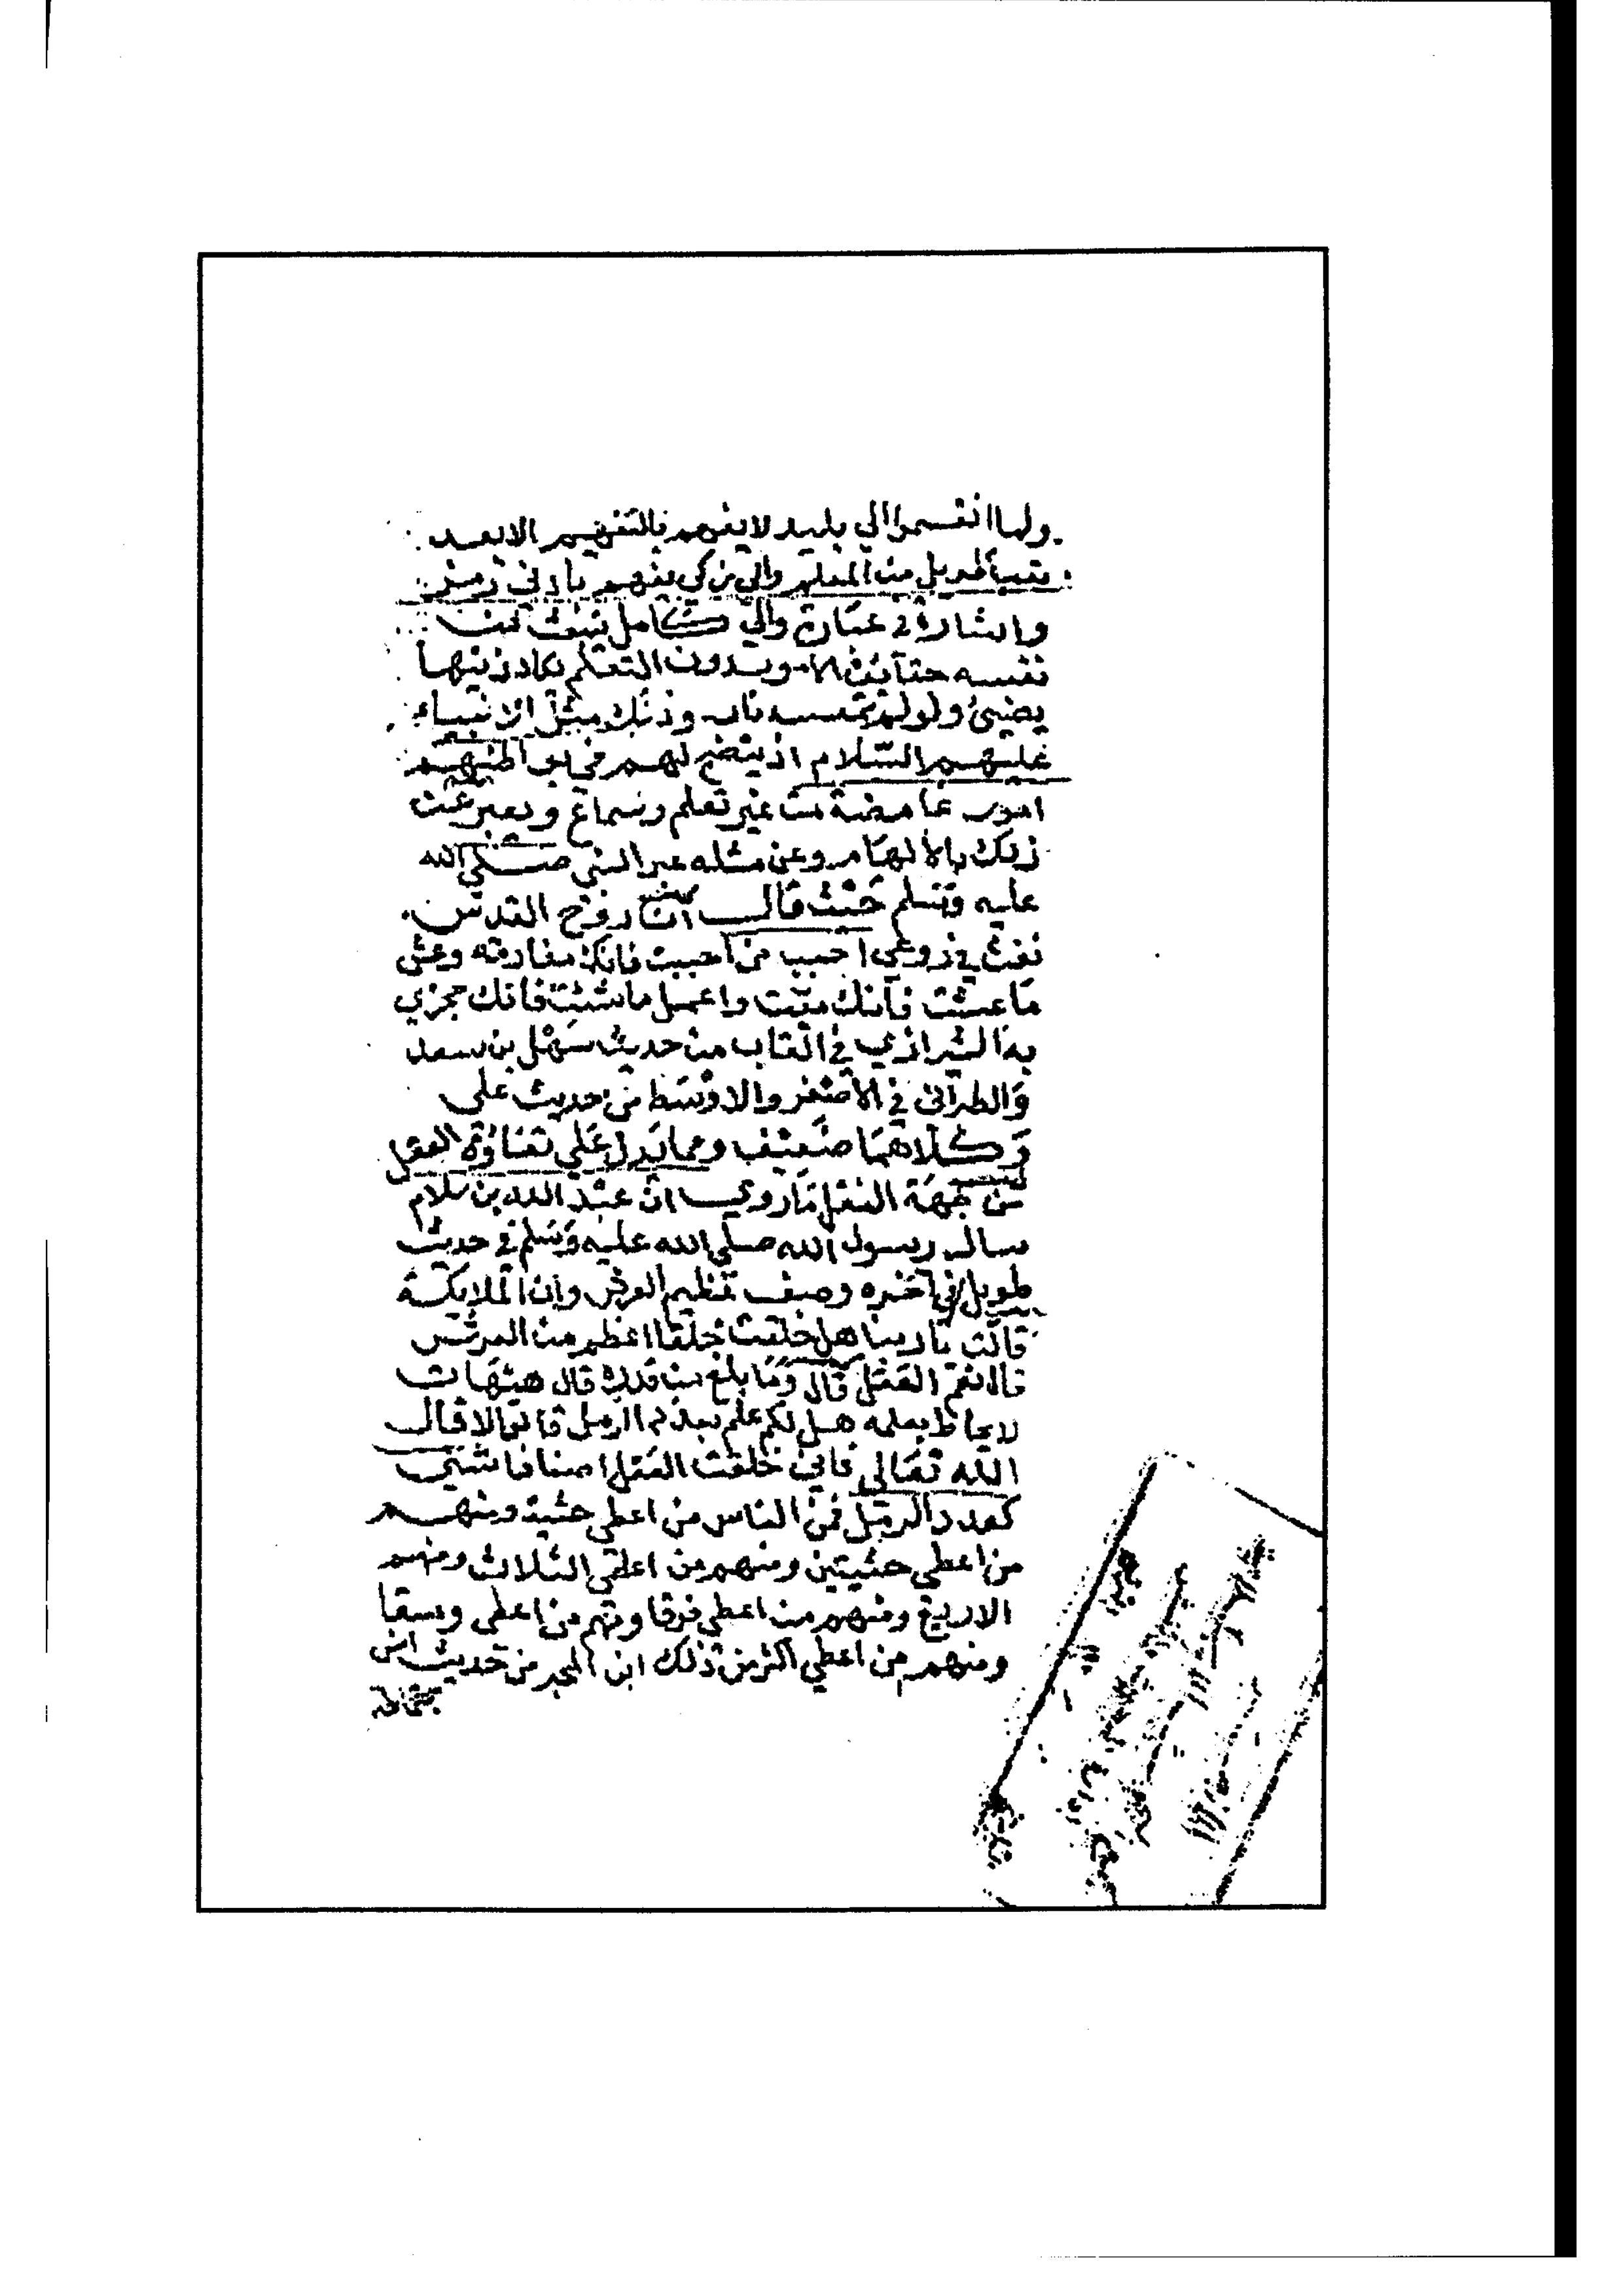 ولما انقسموا الي بليد لا يفهم بالتفهيم الا بعد
تعب طويل من المعلم والي زكي يفهم بادني رمز
واشارة في عبارة والي كامل تنبعث من
نفسه حقايق الامور بدون التعلم يكاد زيتها
يضيئ ولو لم تمسسه نار وذلك مثل الانبياء
عليهم السلام اذ يتضح لهم في بواطنهم
امور غامضة من غير تعلم وسماع ويعبر عن
ذلك بالالهام وعن مثله عبر النبي صلي الله
عليه وسلم حيث قال ان روح القدس
نفث في روعي احبب من احببت فانك مفارقه وعش
ما عشت فانك ميت واعمل ما شئت فانك مجزي
به الشيرازي في القاب من حديث سهل بن سعد
والطبراني في الاصغر والاوسط من حديث علي
وكلاهما ضعيف ومما يدل علي تفاوت العقل
من جهة النقل ما روي ان عبد الله بن سلام
سال رسول الله صلي الله عليه وسلم في حديث
طويل في اخره وصف تعظيم العرش وان الملايكة
قالت يا ربنا هل خلقت خلقا اعظم من العرش
قال نعم العقل قال وما بلغ من قدره قال هيهات
لا يحاط بعلمه هل لكم علم بعدد الرمل قالوا لا قال
الله تعالي فاني خلقت العقل اصنافا شتي
كعدد الرمل فمن الناس من اعطي حثية ومنهم
من اعطي حثيتين ومنهم من اعطي الثلاث ومنهم
الاربع ومنهم من اعطي فرقا ومنهم من اعطي وسقا
ومنهم من اعطي اكثر من ذلك ابن المحبر من حديث انس